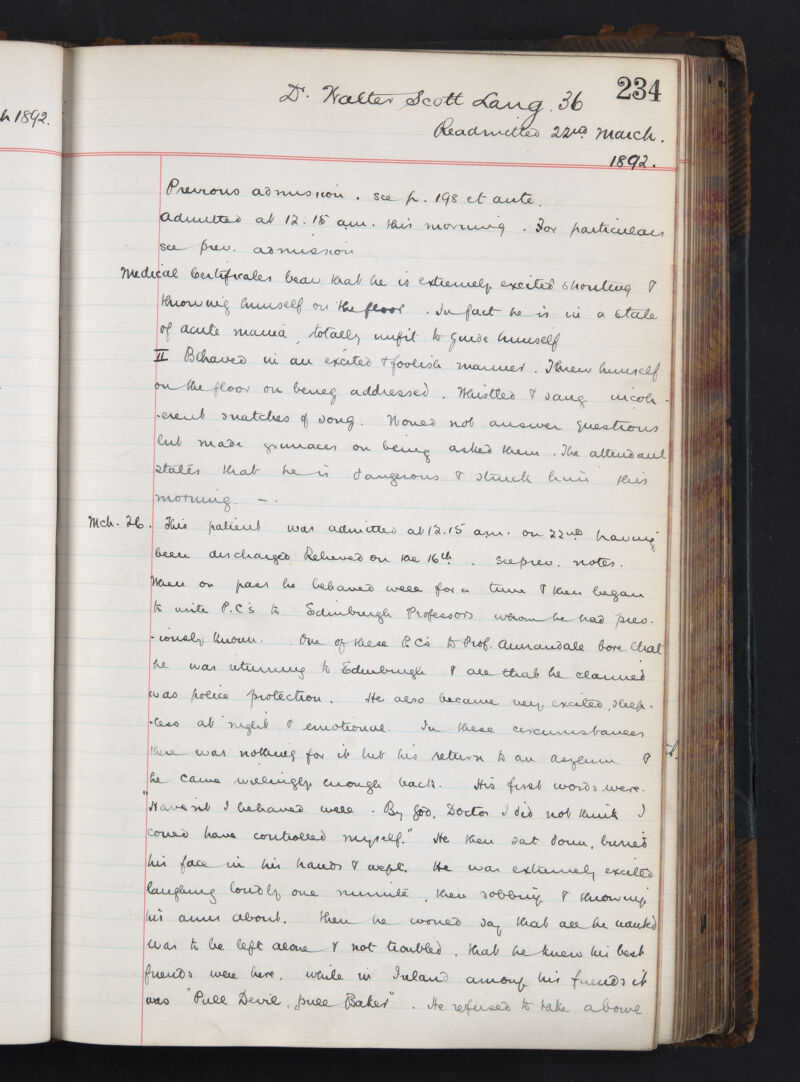 h 1892.
234
Dr. Walter Scott Lang. 36
Readmitted 22nd March.
1892.
Previous admission. see p. 198 et ante.
Admitted at 12.15 a.m. this morning. For particulars
see prev. admission
Medical Certificates bear that he is extremely excited shouting &
throwing himself on the floor. In fact he is in a state
of acute mania, totally unfit to guide himself
II Behaved in an excited & foolish manner. Threw himself
on the floor on being addressed. Whistled & sang incoh-
-erent snatches of song. Would not answer questions
but made grimaces on being asked them. The attendant
states that he is dangerous & struck him this
morning. —.
Mch. 26. This patient was admitted at 12.15 a.m. on 22nd having
been discharged Relieved on the 16th. See prev. notes.
When on pass he behaved well for a time & then began
to write P.C's to Edinburgh Professors whom he had prev-
-iously known. One of these P.C's to Prof. Annandale bore that
he was returning to Edinburgh & all that he claimed
was police protection. He also became very excited, sleep-
-less at night & emotional. In these circumstances
there was nothing for it but his return to an asylum &
he came willingly enough back. His first words were.
"Havent I behaved well. By God, Doctor I did not think I
could have controlled myself." He then sat down, buried
his face in his hands & wept. He was extremely excited
laughing loudly one minute, then sobbing & throwing
his arms about. Then he would say that all he wanted
was to be left alone & not troubled, that he knew his best
friends were here, while in Ireland among his friends it
was "Pull Devil, pull Baker". He refused to take a bowl